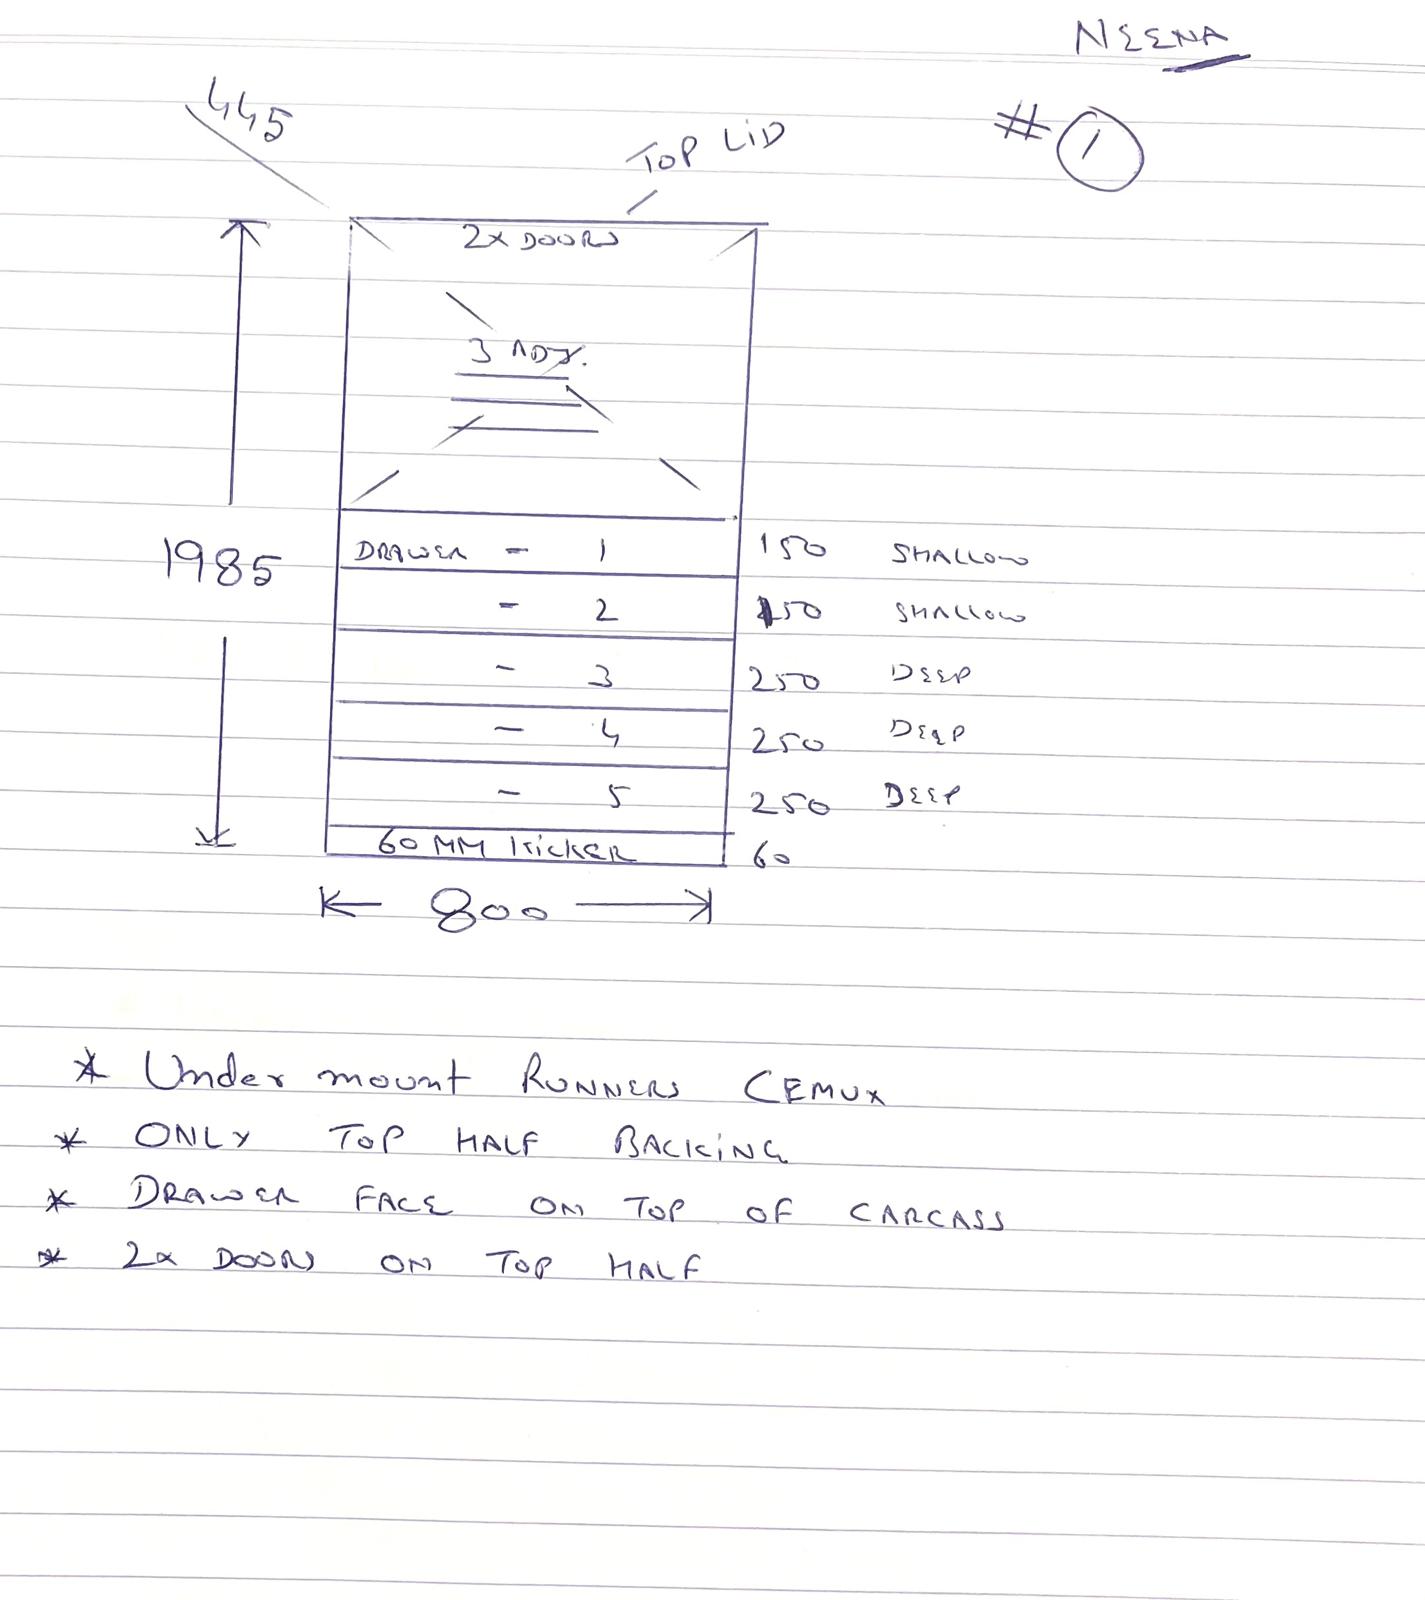 NEENA
# 1
445
TOP LID
2x DOORS
3 ADJ.
1985
DRAWER - 1 150 SHALLOW
- 2 150 SHALLOW
- 3 250 DEEP
- 4 250 DEEP
- 5 250 DEEP
60 MM KICKER 60
800
* Under mount RUNNERS CEMUX
* ONLY TOP HALF BACKING
* DRAWER FACE ON TOP OF CARCASS
* 2x DOORS ON TOP HALF